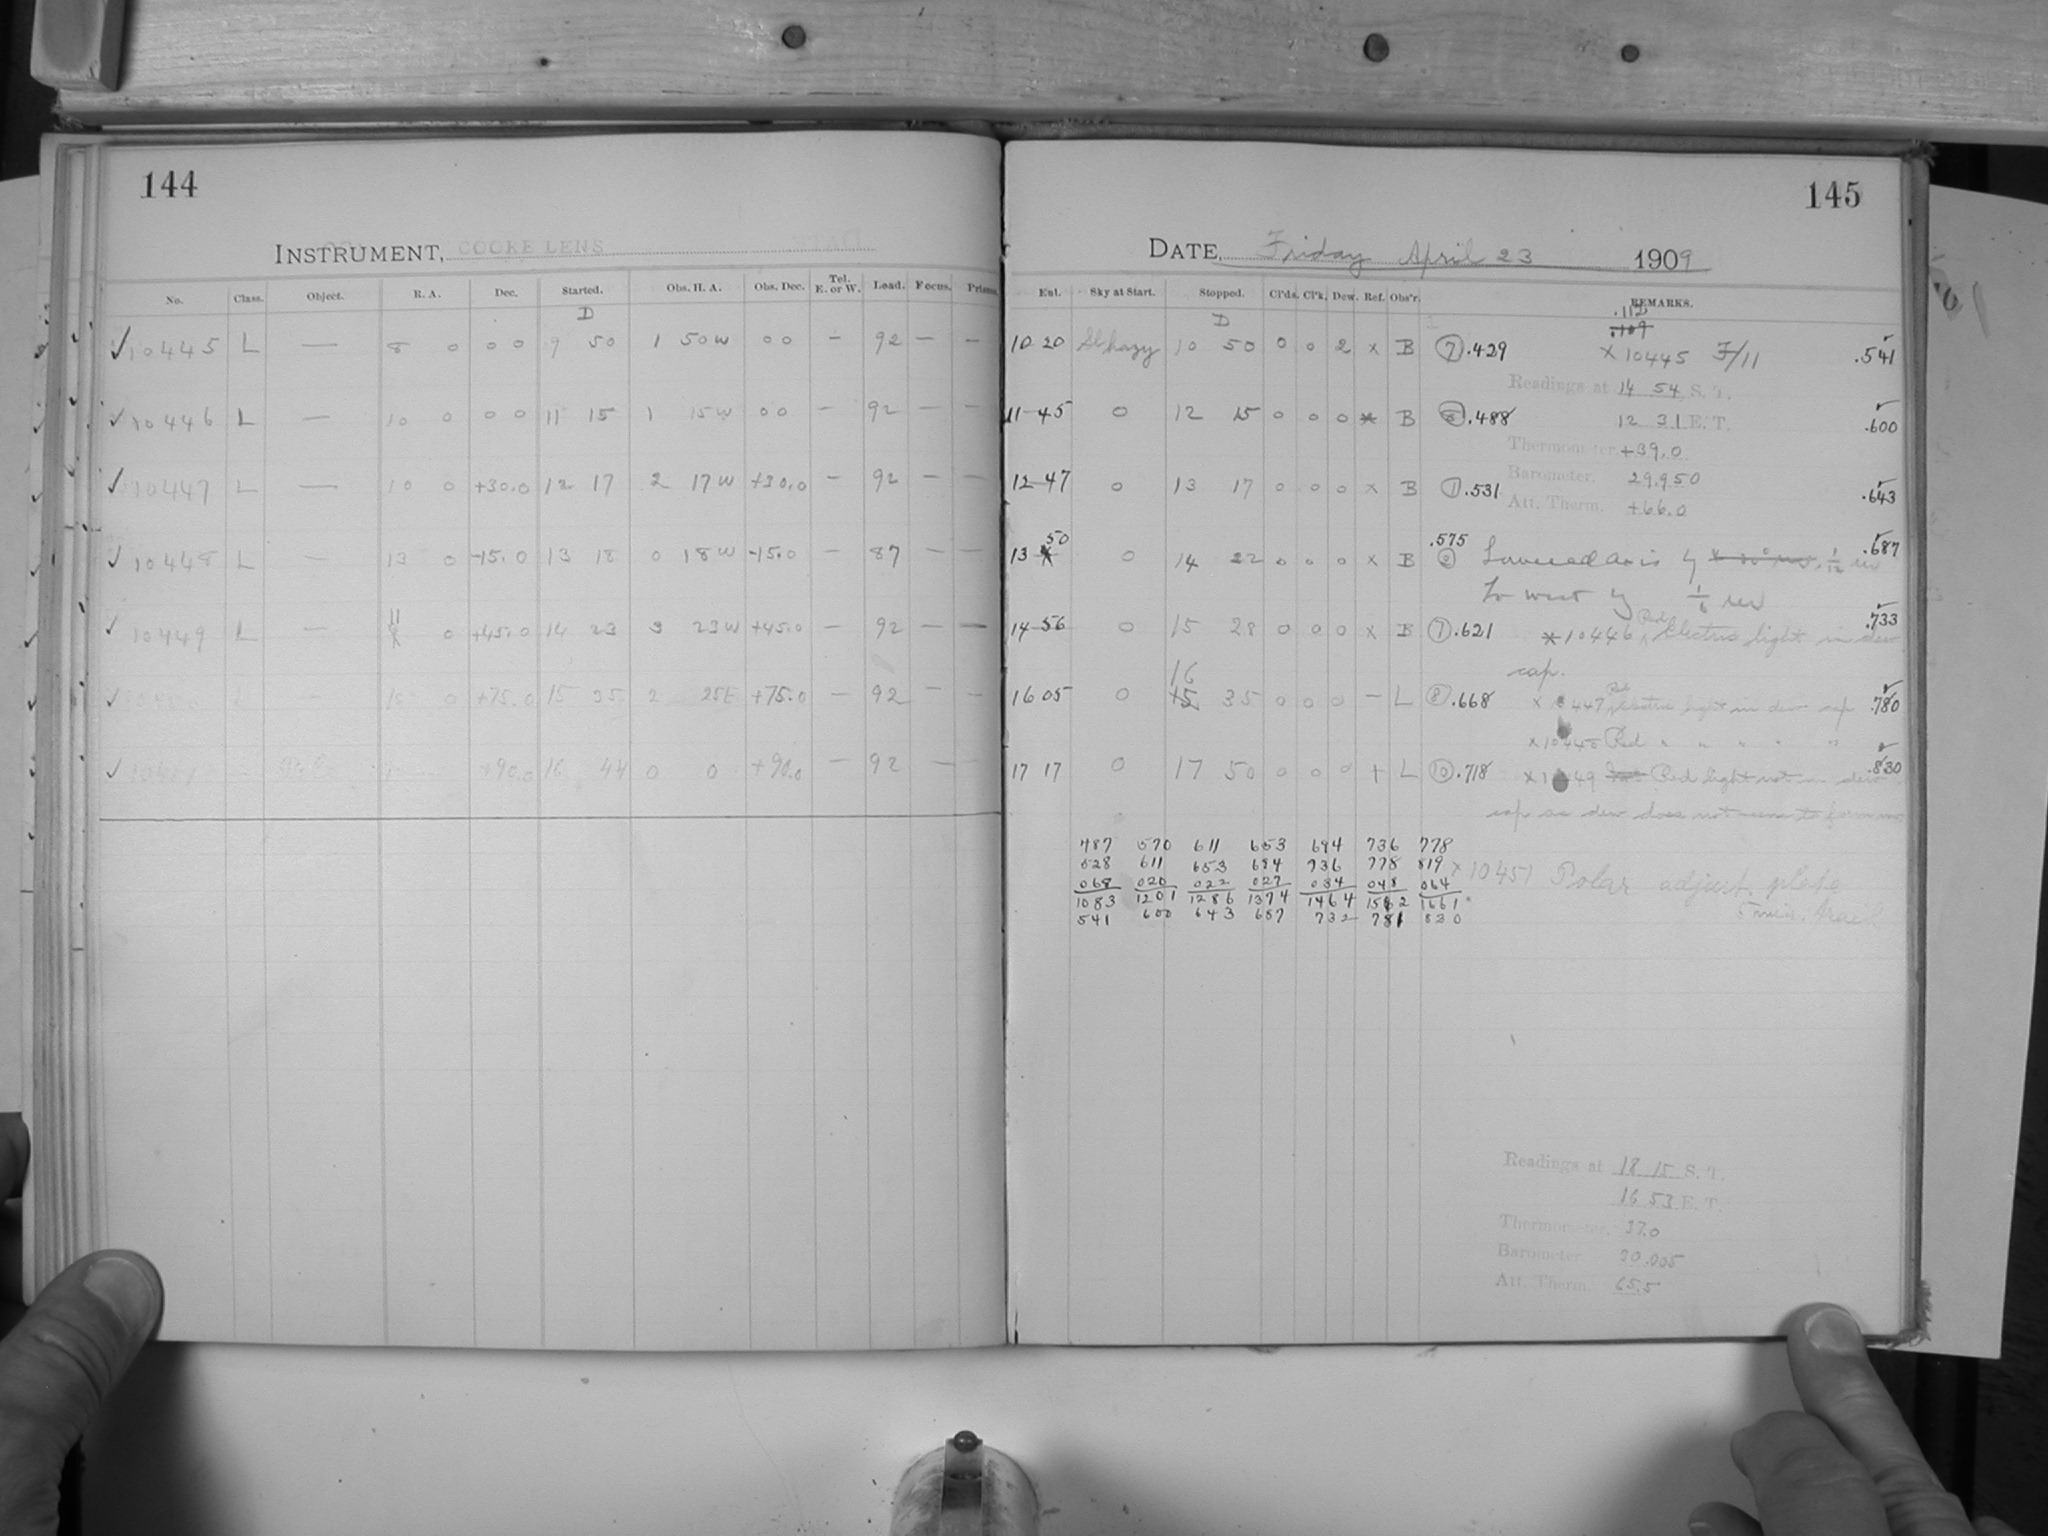 144
INSTRUMENT, COOKE LENS
No. Class. Object. R. A. Dec. Started. Obs. H. A. Obs. Dec. Tel. E. or W. Lead. Focus. Prisms.
D
✓ 10445 L — 8 0 0 0 0 9 50 1 50 W 0 0 — 92 — —
✓ 10446 L — 10 0 0 0 0 11 15 1 15 W 0 0 — 92 — —
✓ 10447 L — 10 0 +30.0 12 17 2 17 W +30.0 — 92 — —
✓ 10448 L — 13 0 -15.0 13 18 0 18 W -15.0 — 87 — —
✓ 10449 L — 11 0 +45.0 14 23 3 23 W +45.0 — 92 — —
✓ L — 0 +75.0 15 35 2 25 E +75.0 — 92 — —
✓ +90.0 16 44 0 0 +90.0 — 92 — —
145
DATE, Friday April 23 1909
Ent. Sky at Start. Stopped. Cl'ds. Cl'k. Dew. Ref. Obs'r. REMARKS.
D .112
.109
10 20 Sl hazy 10 50 0 0 2 x B (7) .429 x 10445 F/11 .541
Readings at 14 54 S. T.
11-45 0 12 15 0 0 0 * B (8) .488 12 31 E. T. .600
Thermometer +39.0
Barometer. 29.950
12-47 0 13 17 0 0 0 x B (1) .531 .643
Att. Therm. +66.0
13 50 0 14 22 0 0 0 x B .575 (2) Lowered axis by 1/12 rev .687
To west by 1/6 rev
14-56 0 15 28 0 0 0 x B (7) .621 * 10446 Red Electric light in dew .733
cap.
16 05 0 16 35 0 0 0 — L (8) .668 x 447 Red Electric light in dew cap .780
x 10448 Red " " " " "
17 17 0 17 50 0 0 0 + L (10) .718 x 10449 Red light not in dew .830
cap as dew does not seem to form
487 570 611 653 694 736 778
528 611 653 694 736 778 819
068 020 022 027 034 048 064
1083 1201 1286 1374 1464 1562 1661
541 600 643 687 732 781 830
x 10451 Polar adjust. plate
Readings at 18 15 S. T.
16 53 E. T.
Thermometer. 37.0
Barometer. 30.005
Att. Therm. 65.5